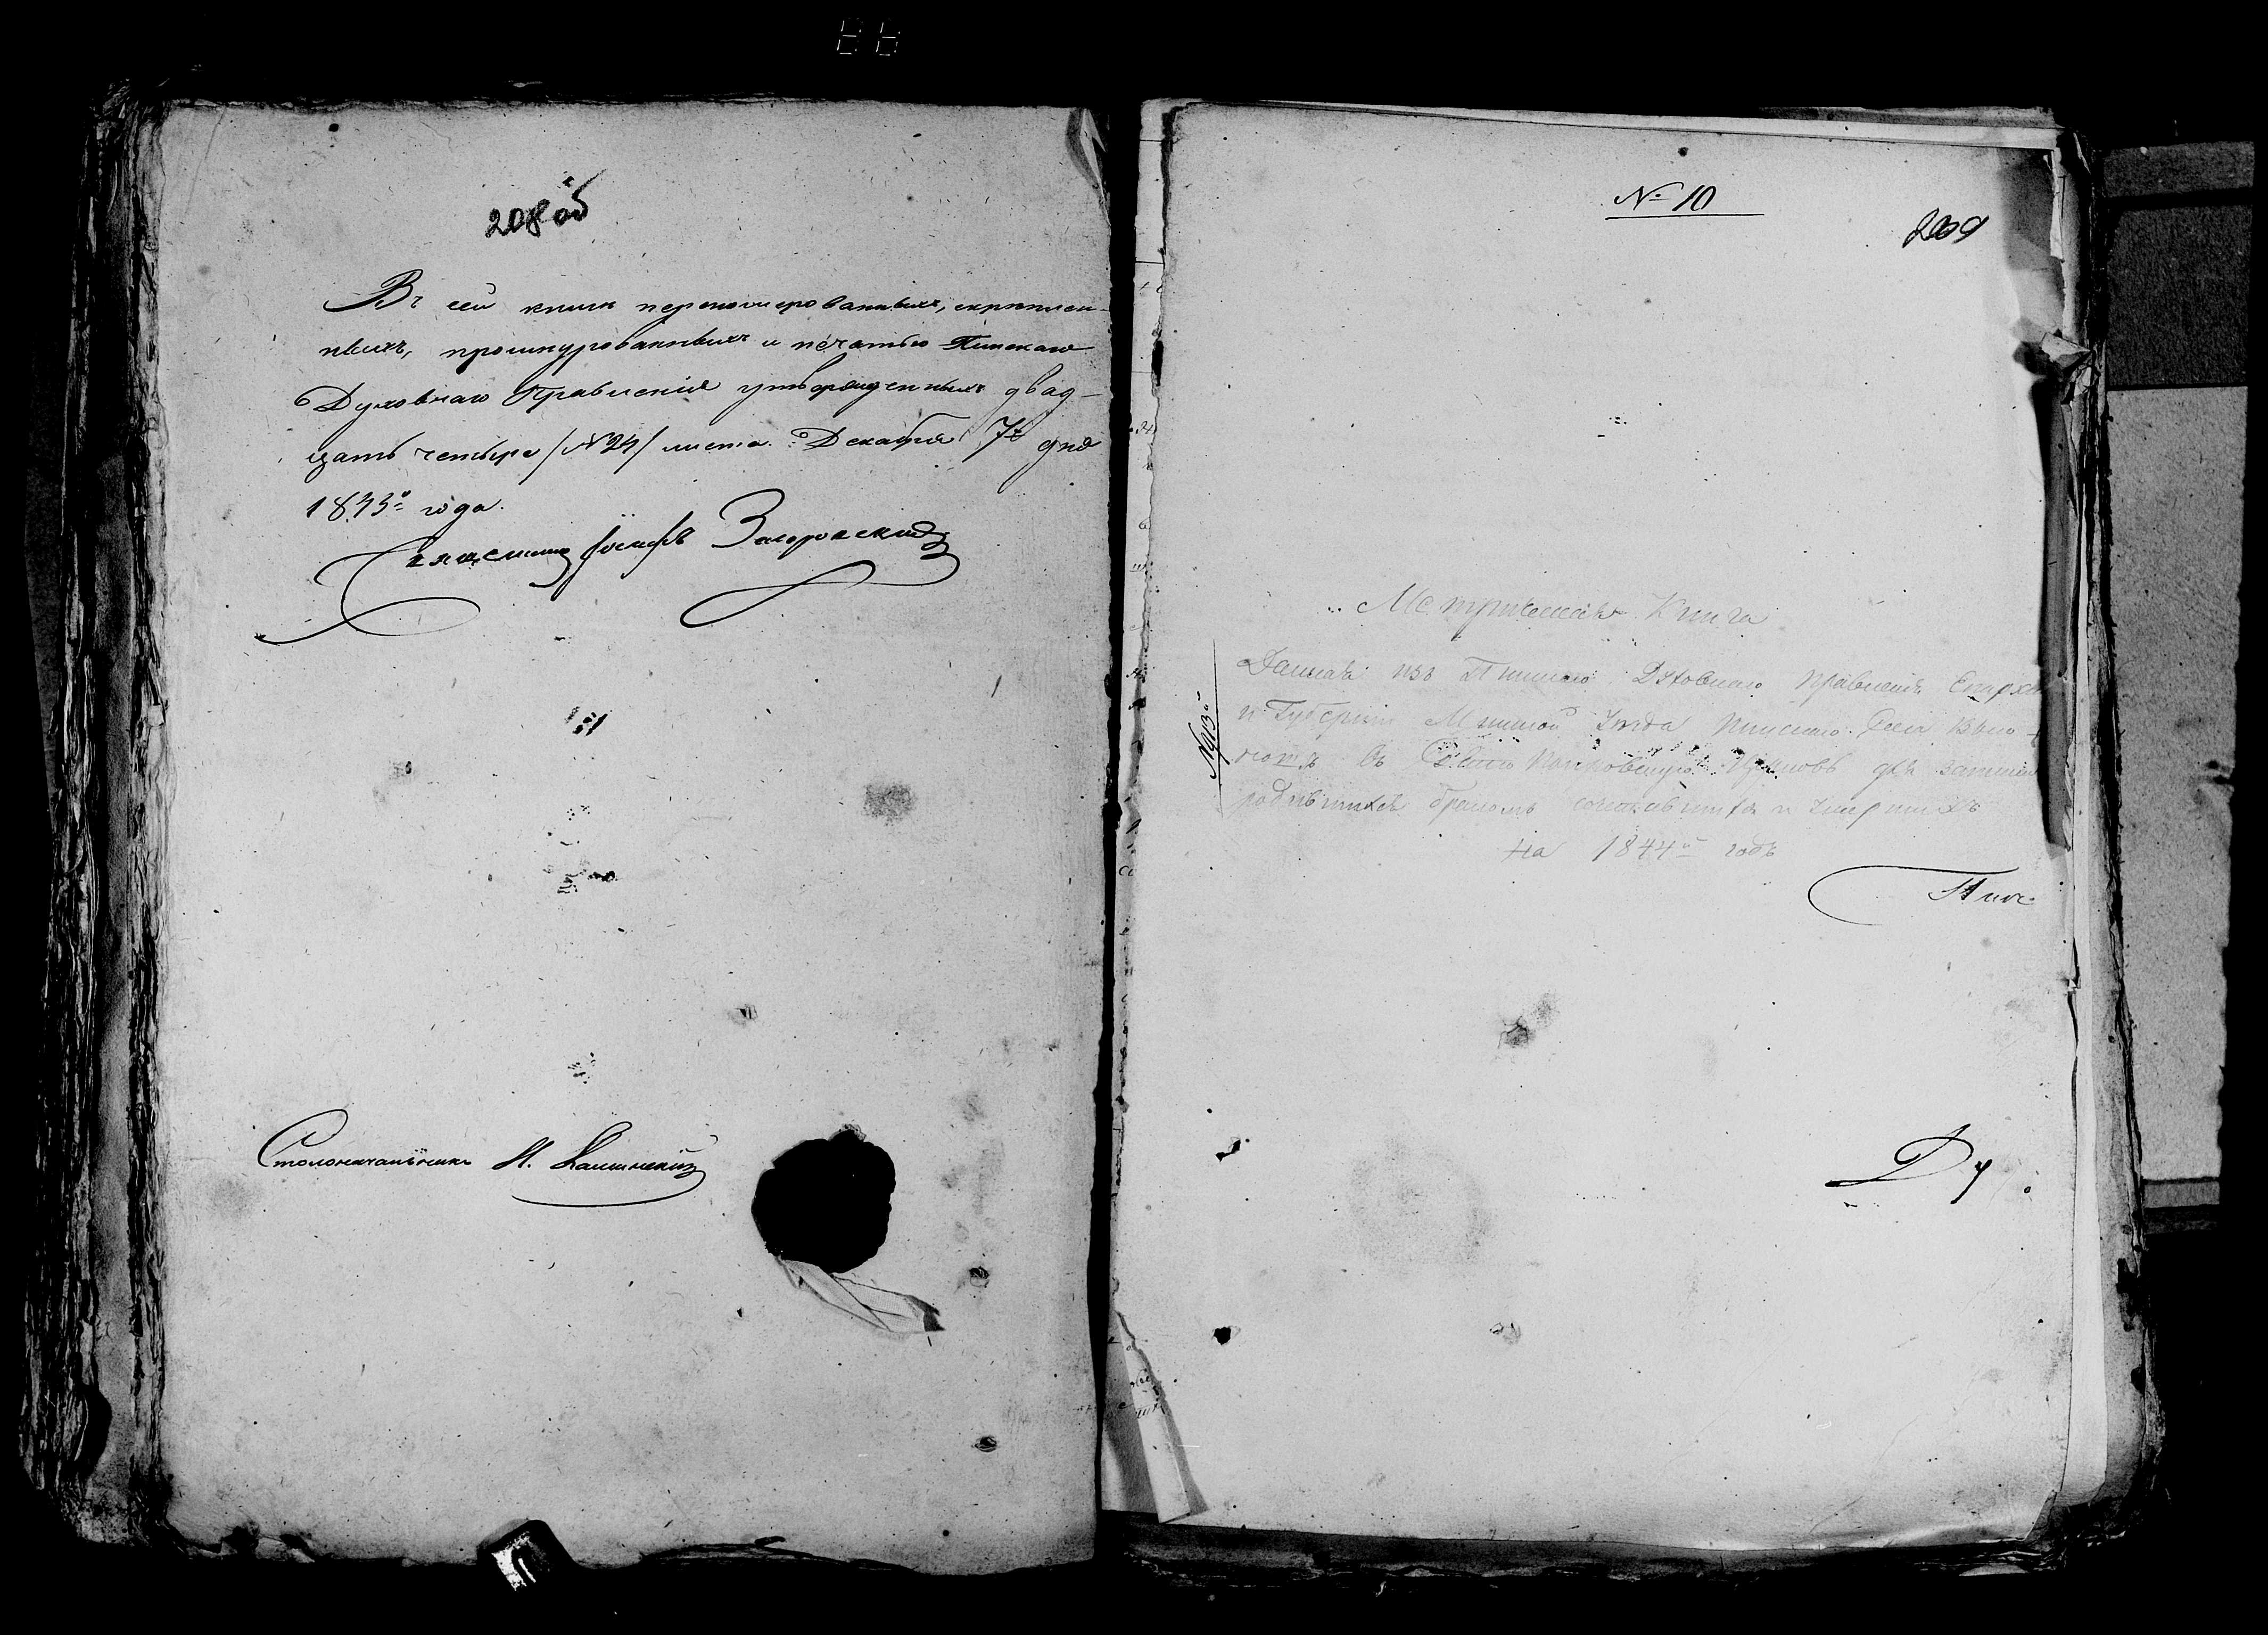 208 об
Въ сей книгѣ перенумерованныхъ, скрѣплен-
ныхъ, прошнурованныхъ и печатью Пинскаго
Духовнаго Правленія утвержденныхъ двад-
цать четыре /№ 24/ листа. Декабря 7 дня
1843го года.
Священникъ Іосифъ
Столоначальникъ
№ 10
209
Метрическая Книга
Данная изъ Пинскаго Духовнаго Правленія Епархіи
и Губерніи Минской Уѣзда Пинскаго Села
въ Свято Покровскую Церковь для записки
родившихся бракомъ сочетавшихся и умершихъ
на 1844й годъ
Пинс
Ду